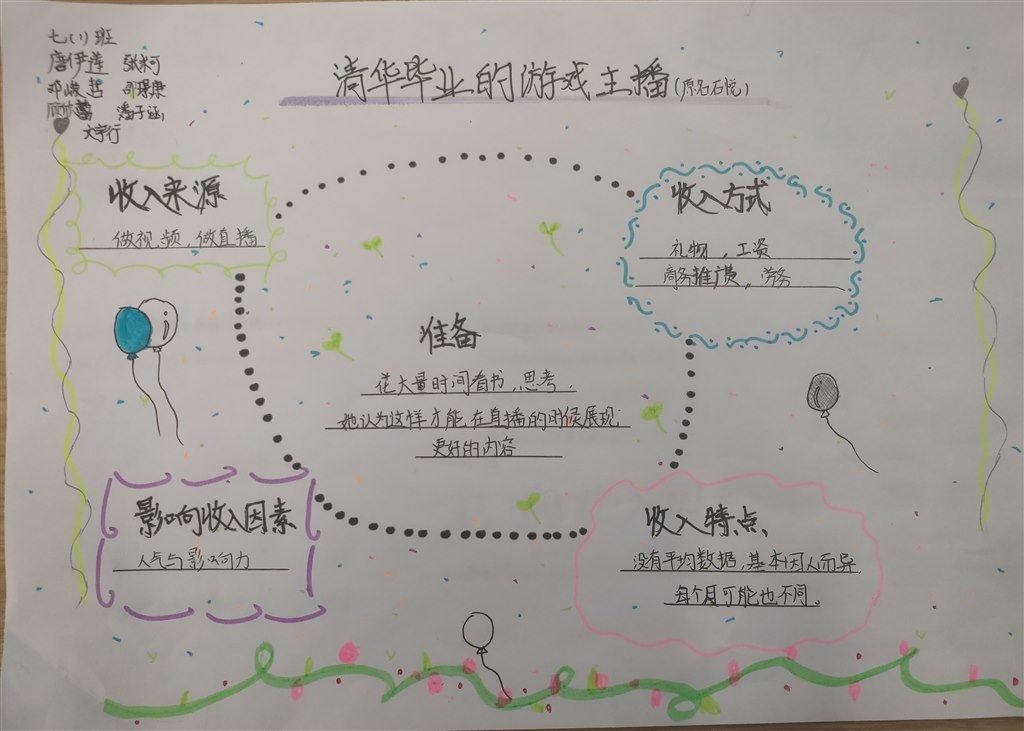 七(1)班
唐伊莲 张米可
邓峻哲 康
潘子涵
清华毕业的游戏主播(原名石悦)
收入来源
做视频,做直播
收入方式
礼物,工资
商务推广费,劳务
准备
花大量时间看书,思考,
她认为这样才能在直播的时候展现
更好的内容
影响收入因素
人气与影响力
收入特点
没有平均数据,基本因人而异,
每个月可能也不同。